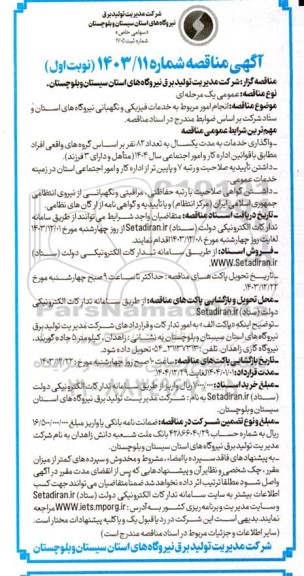 شرکت مدیریت تولید برق
نیروگاه‌های استان سیستان و بلوچستان
"سهامی خاص"
شماره ثبت ۱۷۰۵
آگهی مناقصه شماره ۱۴۰۳/۱۱ (نوبت اول)
مناقصه گزار: شرکت مدیریت تولید برق نیروگاه‌های استان سیستان وبلوچستان.
نوع مناقصه: عمومی یک مرحله ای
موضوع مناقصه: انجام امور مربوط به خدمات فیزیکی و نگهبانی نیروگاه های استان و
ستاد شرکت بر اساس ضوابط مندرج در اسناد مناقصه.
مهم‌ترین شرایط عمومی مناقصه
-واگذاری خدمات به مدت یکسال به تعداد ۸۲ نفر بر اساس گروه های واقعی افراد
مطابق با قوانین اداره کار و امور اجتماعی سال ۱۴۰۴ (متأهل و دارای ۲ فرزند).
-داشتن تأییدیه صلاحیت و رتبه ۷ و پایین تر از اداره کار و امور اجتماعی استان در زمینه
خدمات عمومی
-داشتن گواهی صلاحیت با رتبه حفاظتی، مراقبتی و نگهبانی از نیروی انتظامی
جمهوری اسلامی ایران (مرکز انتظام) و یا تأییدیه و گواهی نامه از ارگان های نظامی.
-تاریخ دریافت اسناد مناقصه: متقاضیان واجد شرایط می توانند از طریق سامانه
تدارکات الکترونیکی دولت (ستاد) Setadiran.ir از روز چهارشنبه مورخ ۱۴۰۳/۱۲/۰۱
لغایت روز چهارشنبه مورخ ۱۴۰۳/۱۲/۰۸ اقدام نمایند.
-فروش اسناد: از طریق سامانه تدارکات الکترونیکی دولت (ستاد)
WWW.Setadiran.ir.
-تاریخ تحویل پاکت های مناقصه: حداکثر تا ساعت ۹ صبح چهارشنبه مورخ
۱۴۰۳/۱۲/۲۲
-محل تحویل و بازگشایی پاکت‌های مناقصه: از طریق سامانه تدارکات الکترونیکی
دولت (ستاد) Setadiran.ir
-توضیح اینکه «پاکت الف» به امور تدارکات و قراردادهای شرکت مدیریت تولید برق
نیروگاه های استان سیستان وبلوچستان به نشانی: زاهدان، کیلومتر ۵ جاده گوربند،
نیروگاه گازی زاهدان. تلفن: تحویل داده شود.
-تاریخ بازگشایی پاکت‌های مناقصه: ساعت ۱۰ صبح روز چهارشنبه مورخ: ۱۴۰۳/۱۲/۲۲
-مدت قرارداد: ۱۴۰۴/۰۱/۰۱ لغایت ۱۴۰۴/۱۲/۲۹
-مبلغ خرید اسناد: ریال واریز از طریق سامانه تدارکات الکترونیکی دولت
(ستاد) Setadiran.ir به نام: شرکت مدیریت تولید برق نیروگاه های استان
سیستان وبلوچستان.
-مبلغ و نوع تضمین شرکت در مناقصه: ضمانت نامه بانکی یا واریز مبلغ
ریال به شماره حساب بانک ملت شعبه دانش زاهدان به نام شرکت
مدیریت تولید برق نیروگاه های استان سیستان وبلوچستان.
-به پیشنهادهای فاقد سپرده یا امضاء، مشروط و مخدوش و سپرده های کمتر از میزان
مقرر، چک شخصی و نظایر آن و پیشنهادهایی که پس از انقضای مدت مقرر در آگهی
واصل شود مطلقاً ترتیب اثر داده نخواهد شد. ضمناً متقاضیان می توانند جهت کسب
اطلاعات بیشتر به سایت سامانه تدارکات الکترونیکی دولت (ستاد) Setadiran.ir
و سایت مدیریت و برنامه ریزی کشور به آدرس: WWW.iets.mporg.ir مراجعه
نمایند. بدیهی است این شرکت در رد یا قبول یک و یا کلیه پیشنهادات مختار است.
(سایر اطلاعات و جزئیات مربوط در اسناد مناقصه مندرج است)
شرکت مدیریت تولید برق نیروگاه‌های استان سیستان وبلوچستان